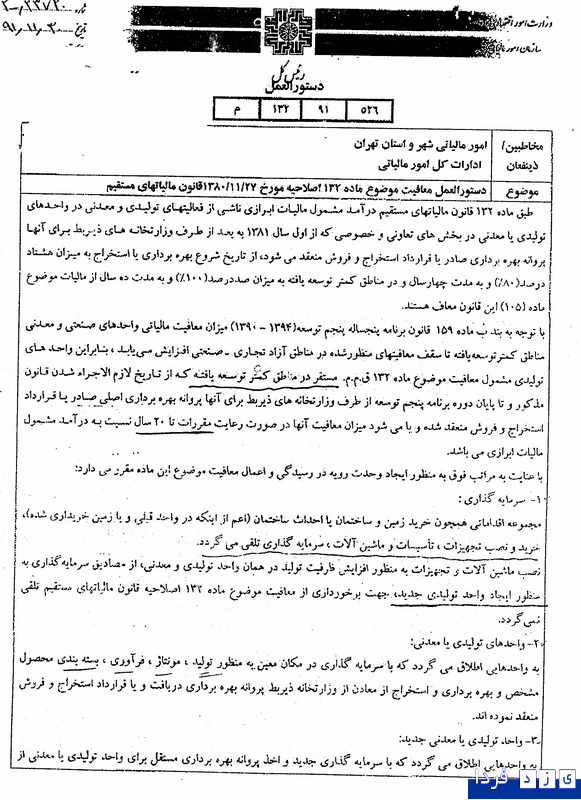 ۲۰۰/۲۳۷۲۰
تاریخ ۹۱/۱۱/۳۰
وزارت امور اقتصادی
سازمان امور مالیاتی
رئیس کل
دستورالعمل
۵۲۶ ۹۱ ۱۳۲ م
مخاطبین/ذینفعان
امور مالیاتی شهر و استان تهران
ادارات کل امور مالیاتی
موضوع
دستورالعمل معافیت موضوع ماده ۱۳۲ اصلاحیه مورخ ۱۳۸۰/۱۱/۲۷ قانون مالیاتهای مستقیم
طبق ماده ۱۳۲ قانون مالیاتهای مستقیم درآمد مشمول مالیات ابرازی ناشی از فعالیتهای تولیدی و معدنی در واحدهای
تولیدی یا معدنی در بخش های تعاونی و خصوصی که از اول سال ۱۳۸۱ به بعد از طرف وزارتخانه های ذیربط برای آنها
پروانه بهره برداری صادر یا قرارداد استخراج و فروش منعقد می شود، از تاریخ شروع بهره برداری یا استخراج به میزان هشتاد
درصد(۸۰٪) و به مدت چهارسال و در مناطق کمتر توسعه یافته به میزان صددرصد(۱۰۰٪) و به مدت ده سال از مالیات موضوع
ماده (۱۰۵) این قانون معاف هستند.
با توجه به بند ب ماده ۱۵۹ قانون برنامه پنجساله پنجم توسعه(۱۳۹۴ - ۱۳۹۰) میزان معافیت مالیاتی واحدهای صنعتی و معدنی
مناطق کمترتوسعه‌یافته تا سقف معافیتهای منظورشده در مناطق آزاد تجاری - صنعتی افزایش می‌یابد ، بنابراین واحد های
تولیدی مشمول معافیت موضوع ماده ۱۳۲ ق.م.م. مستقر در مناطق کمتر توسعه یافته که از تاریخ لازم الاجراء شدن قانون
مذکور و تا پایان دوره برنامه پنجم توسعه از طرف وزارتخانه های ذیربط برای آنها پروانه بهره برداری اصلی صادر یا قرارداد
استخراج و فروش منعقد شده و یا می شود میزان معافیت آنها در صورت رعایت مقررات تا ۲۰ سال نسبت به درآمد مشمول
مالیات ابرازی می باشد.
با عنایت به مراتب فوق به منظور ایجاد وحدت رویه در رسیدگی و اعمال معافیت موضوع این ماده مقرر می دارد:
۱- سرمایه گذاری :
مجموعه اقداماتی همچون خرید زمین و ساختمان یا احداث ساختمان (اعم از اینکه در واحد قبلی و یا زمین خریداری شده)،
خرید و نصب تجهیزات ، تأسیسات و ماشین آلات ، سرمایه گذاری تلقی می گردد.
نصب ماشین آلات و تجهیزات به منظور افزایش ظرفیت تولید در همان واحد تولیدی و معدنی، از مصادیق سرمایه‌گذاری به
منظور ایجاد واحد تولیدی جدید، جهت برخورداری از معافیت موضوع ماده ۱۳۲ اصلاحیه قانون مالیاتهای مستقیم تلقی
نمی‌گردد.
۲- واحدهای تولیدی یا معدنی:
به واحدهایی اطلاق می گردد که با سرمایه گذاری در مکان معین به منظور تولید ، مونتاژ ، فرآوری ، بسته بندی محصول
مشخص و بهره برداری و استخراج از معادن از وزارتخانه ذیربط پروانه بهره برداری دریافت و یا قرارداد استخراج و فروش
منعقد نموده اند.
۳- واحد تولیدی یا معدنی جدید:
به واحدهایی اطلاق می گردد که با سرمایه گذاری جدید و اخذ پروانه بهره برداری مستقل برای واحد تولیدی یا معدنی از
یزد فردا